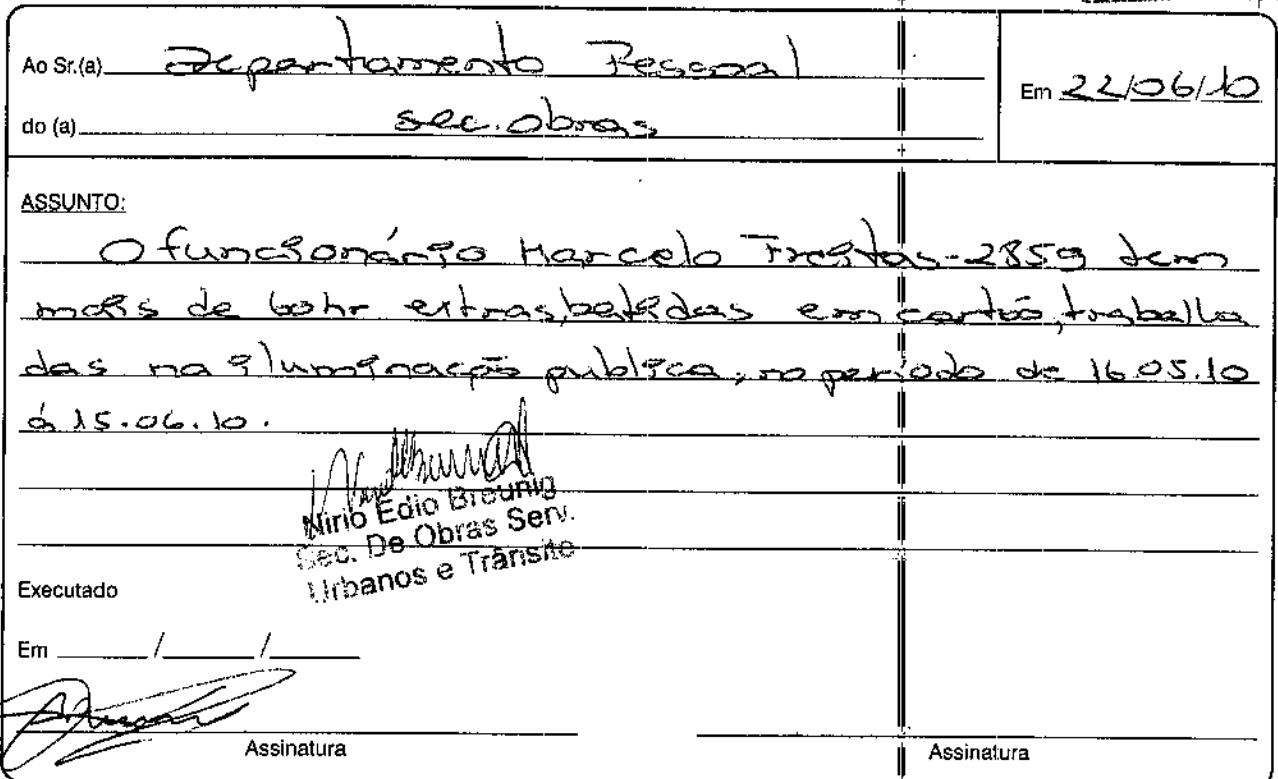 Ao Sr.(a) Departamento Pessoal
Em 22/06/10
do (a) sec. obras
ASSUNTO:
O funcionário Marcelo Freitas-2859 tem
mais de 60hr extras, batidas em cartão, trabalha
das na iluminação publica, no período de 16.05.10
á 15.06.10.
Nirio Edio Breunig
Sec. De Obras Serv.
Urbanos e Trânsito
Executado
Em / /
Assinatura
Assinatura